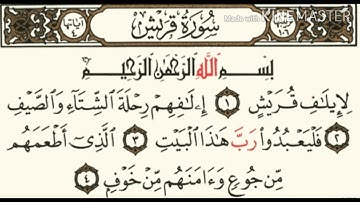 سُورَةُ قُرَيْشٍ
آياتها ٤
ترتيبها ١٠٦
Made with KINEMASTER
بِسْمِ ٱللَّهِ ٱلرَّحْمَٰنِ ٱلرَّحِيمِ
لِإِيلَٰفِ قُرَيْشٍ ١ إِۦلَٰفِهِمْ رِحْلَةَ ٱلشِّتَآءِ وَٱلصَّيْفِ
٢ فَلْيَعْبُدُوا۟ رَبَّ هَٰذَا ٱلْبَيْتِ ٣ ٱلَّذِىٓ أَطْعَمَهُم
مِّن جُوعٍ وَءَامَنَهُم مِّنْ خَوْفٍۭ ٤